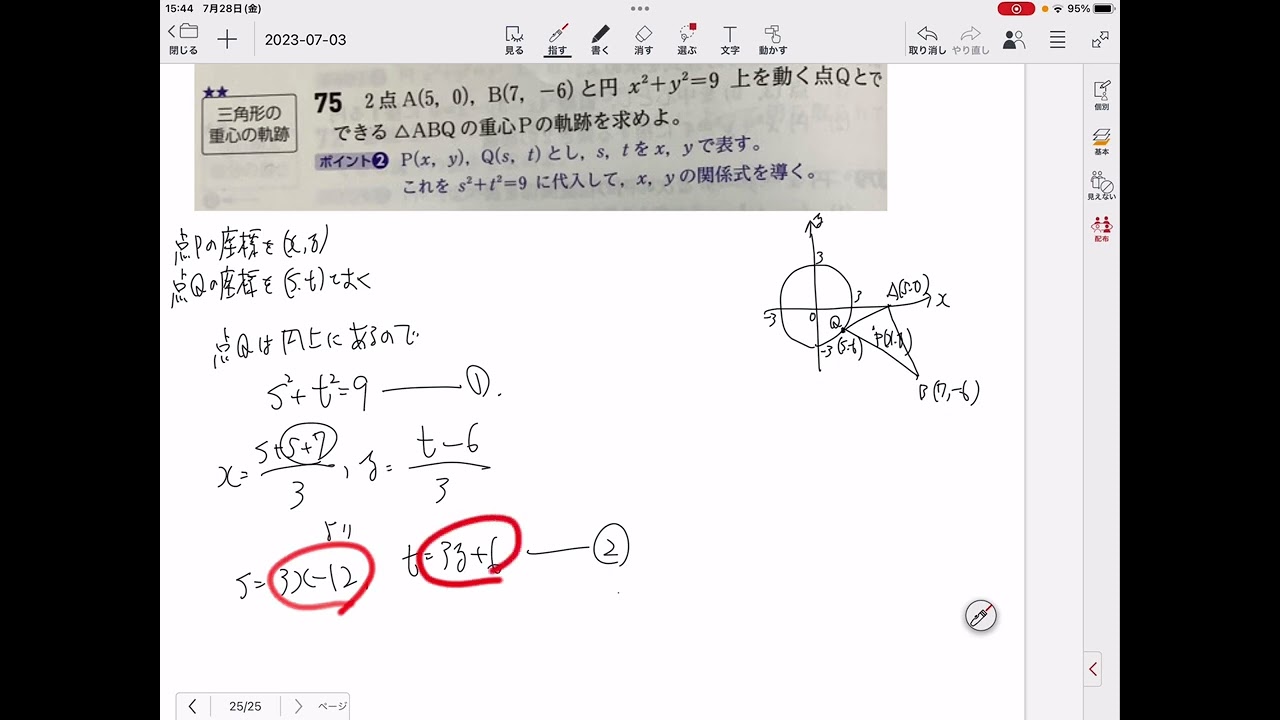 15:44 7月28日(金)
95%
閉じる
2023-07-03
見る
指す
書く
消す
選ぶ
文字
動かす
取り消し
やり直し
個別
基本
見えない
配布
★★
三角形の
重心の軌跡
75 2点A(5, 0), B(7, −6)と円 x²+y²=9 上を動く点Qとで
できる △ABQの重心Pの軌跡を求めよ。
ポイント❷ P(x, y), Q(s, t)とし, s, tをx, yで表す。
これを s²+t²=9 に代入して, x, yの関係式を導く。
点Pの座標を(x,y)
点Qの座標を(s.t)とおく
点Qは円上にあるので
s²+t²=9 ―― ①.
x= s+5+7 / 3 , y= t−6 / 3
より
s=3x−12, t=3y+6 ―― ②
y
3
A(5.0)
−3
0
3
x
Q
(s.t)
P(x.y)
−3
B(7,−6)
25/25
ページ